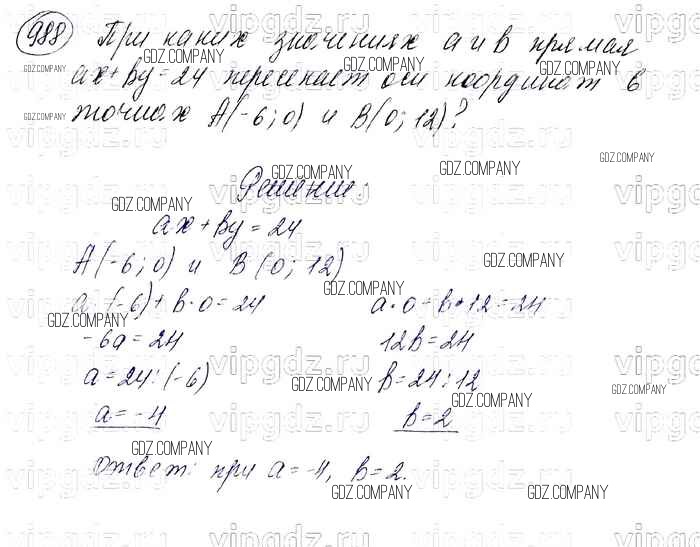 988 При каких значениях a и b прямая
ax + by = 24 пересекает оси координат в
точках A(-6; 0) и B(0; 12)?
Решение:
ax + by = 24
A(-6; 0) и B(0; 12)
a·(-6) + b·0 = 24
a·0 + b·12 = 24
-6a = 24
12b = 24
a = 24 : (-6)
b = 24 : 12
a = -4
b = 2
Ответ: при a = -4, b = 2.
GDZ.COMPANY
vipgdz.ru